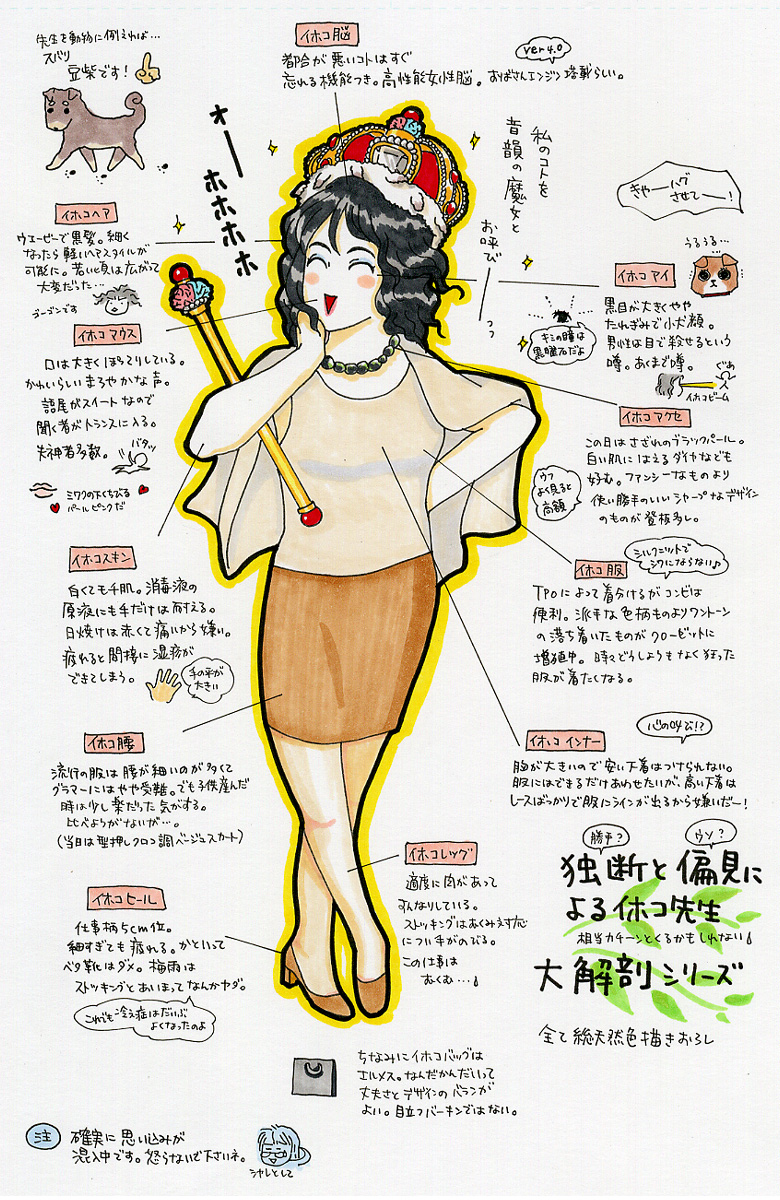 先生を動物に例えれば…
ズバリ
豆柴です！
イホコ脳
ver 4.0
都合が悪いコトはすぐ
忘れる機能つき。高性能女性脳。おばさんエンジン搭載らしい。
オーホホホホ
私のコトを
音韻の魔女と
お呼びーっ
きゃーハグ
させてー！
イホコヘア
ウエービーで黒髪。細く
なったら軽いヘアスタイルが
可能に。若い頃は広がって
大変だった…
ゴーゴンです
うるうる…
イホコ アイ
黒目が大きくやや
たれぎみで小犬顔。
男性は目で殺せるという
噂。あくまで噂。
キミの瞳は
黒曜石だよ
ぐあ
イホコビーム
イホコ マウス
口は大きくぽってりしている。
かわいらしいまろやかな声。
語尾がスイートなので
聞く者がトランスに入る。
失神者多数。
バタッ
ミワクの下くちびる
パールピンクだ
イホコ アクセ
この日はさざれのブラックパール。
白い肌にはえるダイヤなども
好む。ファンシーなものより
使い勝手のいいシャープなデザイン
のものが登板多し。
ウフ
よく見ると
高額
イホコスキン
白くても千肌。消毒液の
原液にも手だけは耐える。
日焼けは赤くて痛いから嫌い。
疲れると間接に湿疹が
できてしまう。
手の平が
大きい
シルクニットで
シワにならない♪
イホコ 服
TPOによって着分けるがコンビは
便利。派手な色柄ものよりワントーン
の落ち着いたものがクローゼットに
増殖中。時々どうしようもなく狂った
服が着たくなる。
イホコ 腰
流行の服は腰が細いのが多くて
グラマーにはやや受難。でも子供産んだ
時は少し楽だった気がする。
比べようがないが…。
(当日は型押しクロコ調ベージュスカート)
イホコ インナー
心の叫び!?
胸が大きいので安い下着はつけられない。
服にはできるだけあわせたいが、高い下着は
レースばっかりで服にラインが出るから嫌いだー！
イホコレッグ
適度に肉があって
すんなりしている。
ストッキングはあくみえず応
につい手がのびる。
この仕事は
むくむ…
イホコヒール
仕事柄5cm位。
細すぎても疲れる。かといって
ペタ靴はダメ。梅雨は
ストッキングとあいまってなんかヤダ。
これでも冷え症はだいぶ
よくなったのよ
勝手？
ウソ？
独断と偏見に
よるイホコ先生
相当カチーンとくるかもしれない
大解剖シリーズ
全て総天然色描きおろし
ちなみにイホコバッグは
エルメス。なんだかんだいって
丈夫さとデザインのバランスが
よい。目立つバーキンではない。
注
確実に思い込みが
混入中です。怒らないで下さいネ。
シャレとして